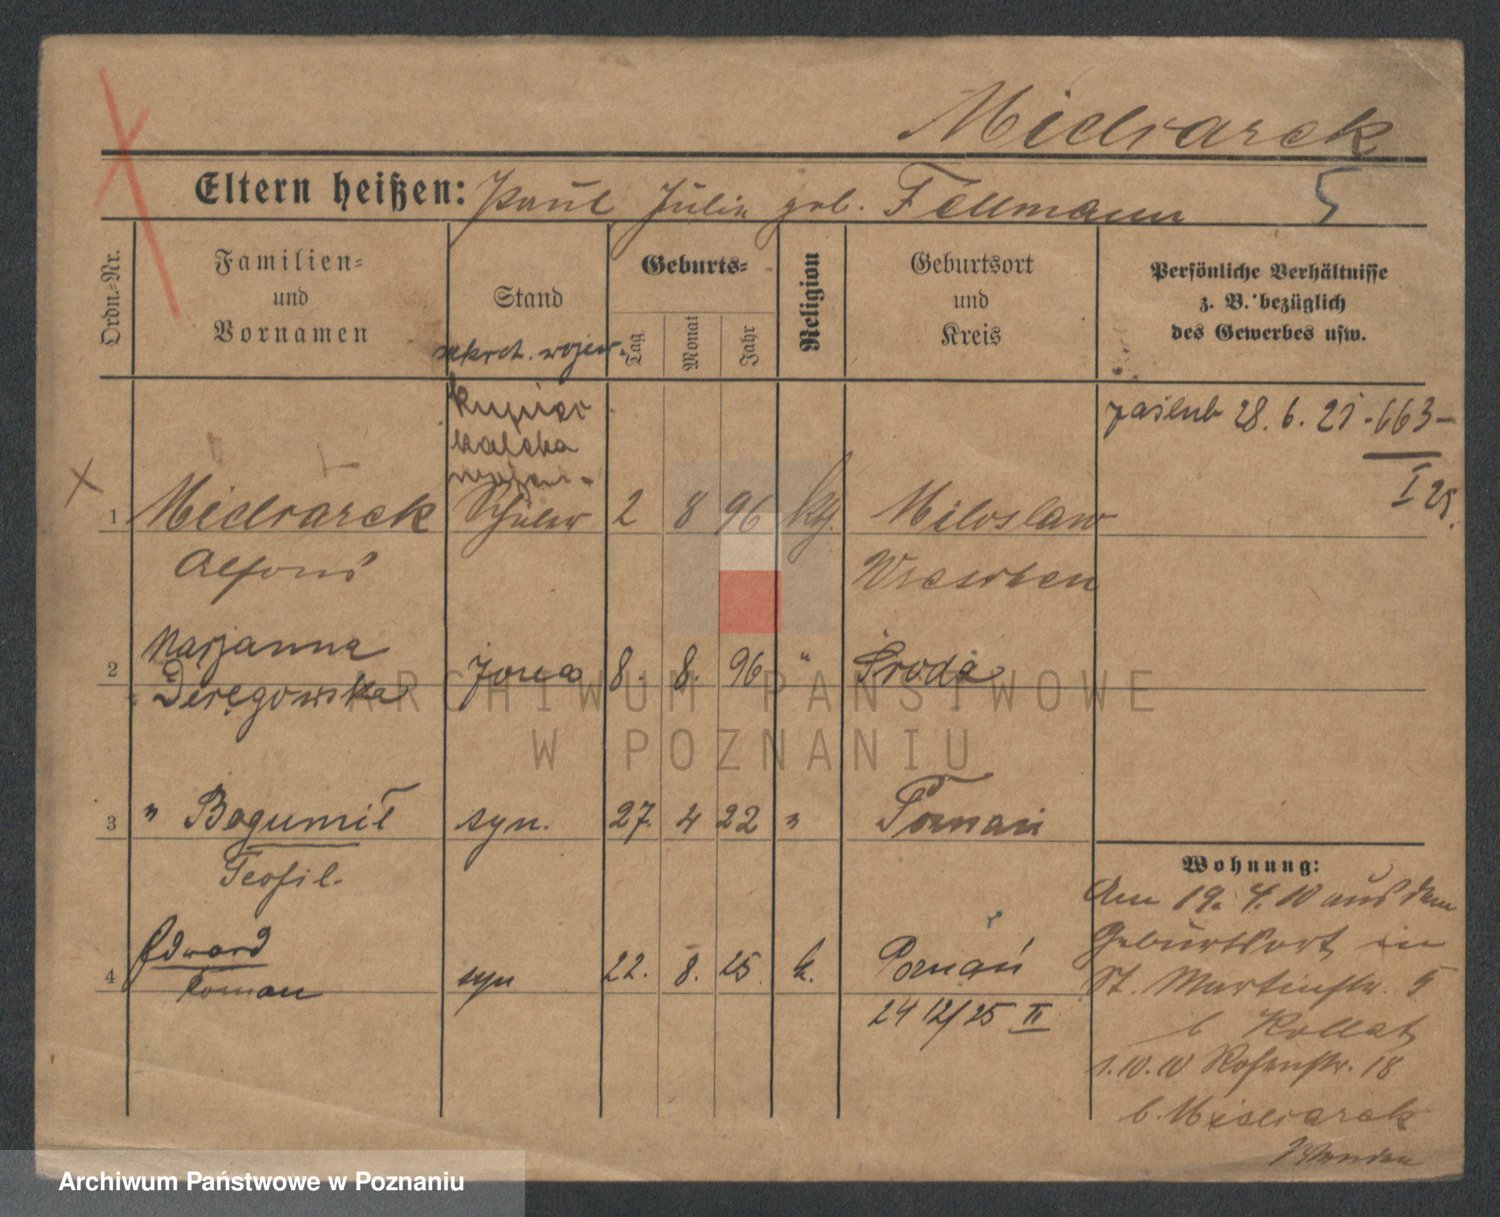 Midrarek
Eltern heißen: Paul Julia geb. Fellmann 5
Ordn.-Nr.
Familien-
und
Vornamen
Stand
Geburts-
Tag
Monat
Jahr
Religion
Geburtsort
und
Kreis
Persönliche Verhältnisse
z. B. bezüglich
des Gewerbes usw.
sekret. wojew.
kupiec
zaślub 28. 6. 21 -663-
I 25.
1 Schüler 2 8 96 kth. Miloslaw
Alfons Wreschen
2 Marjanna żona 8. 8. 96 " Środa
Deręgowska
3 " Bogumił syn. 27. 4 22 " Poznań
Teofil.
4 Edward syn 22. 8. 25. k. Poznań
Roman
24 12/25 II
Wohnung:
Am 19. 4. 10 aus dem
Geburtsort in
St. Martinstr. 5
b Kollat
1.10.10 Rosenstr. 18
b.
ARCHIWUM PAŃSTWOWE
W POZNANIU
Archiwum Państwowe w Poznaniu